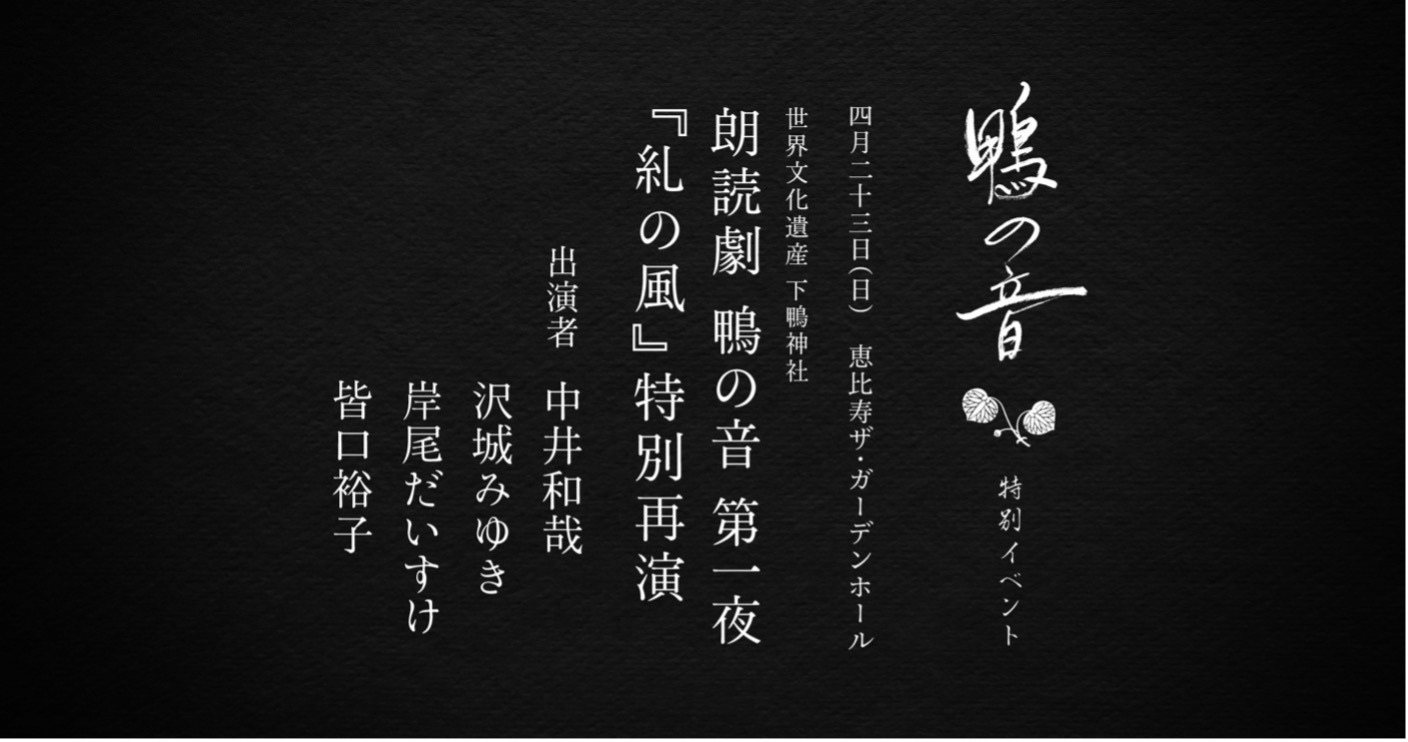 鴨の音
特別イベント
四月二十三日(日)　恵比寿ザ・ガーデンホール
世界文化遺産 下鴨神社
朗読劇 鴨の音 第一夜
『糺の風』特別再演
出演者 中井和哉
沢城みゆき
岸尾だいすけ
皆口裕子